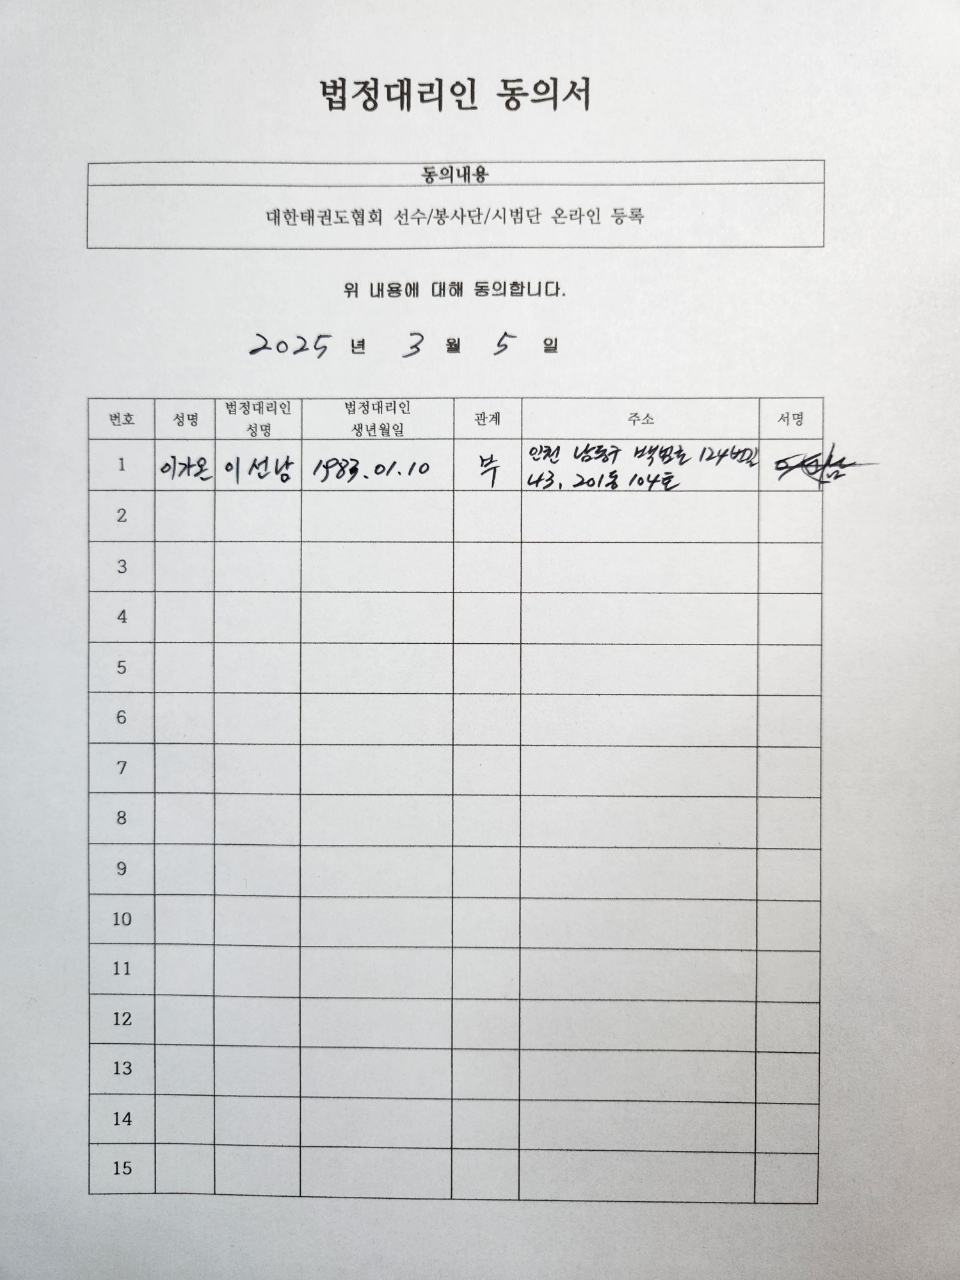 법정대리인 동의서
동의내용
대한태권도협회 선수/봉사단/시범단 온라인 등록
위 내용에 대해 동의합니다.
2025 년 3 월 5 일
번호 성명 법정대리인 성명 법정대리인 생년월일 관계 주소 서명
1 이가온 이선남 1983.01.10 부 인천 남동구 백범로 124번길
43, 201동 104호
2
3
4
5
6
7
8
9
10
11
12
13
14
15